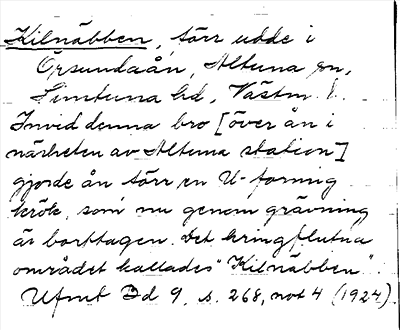 Kilnäbben, förr udde i
Örsundaån, Altuna sn,
Simtuna hd, Västm. l.
Invid denna bro [över ån i
närheten av Altuna station]
gjorde ån förr en U-formig
krök, som nu genom grävning
är borttagen. Det kringflutna
området kallades "Kilnäbben".
Ufmt Bd 9, s. 268, not 4 (1924).